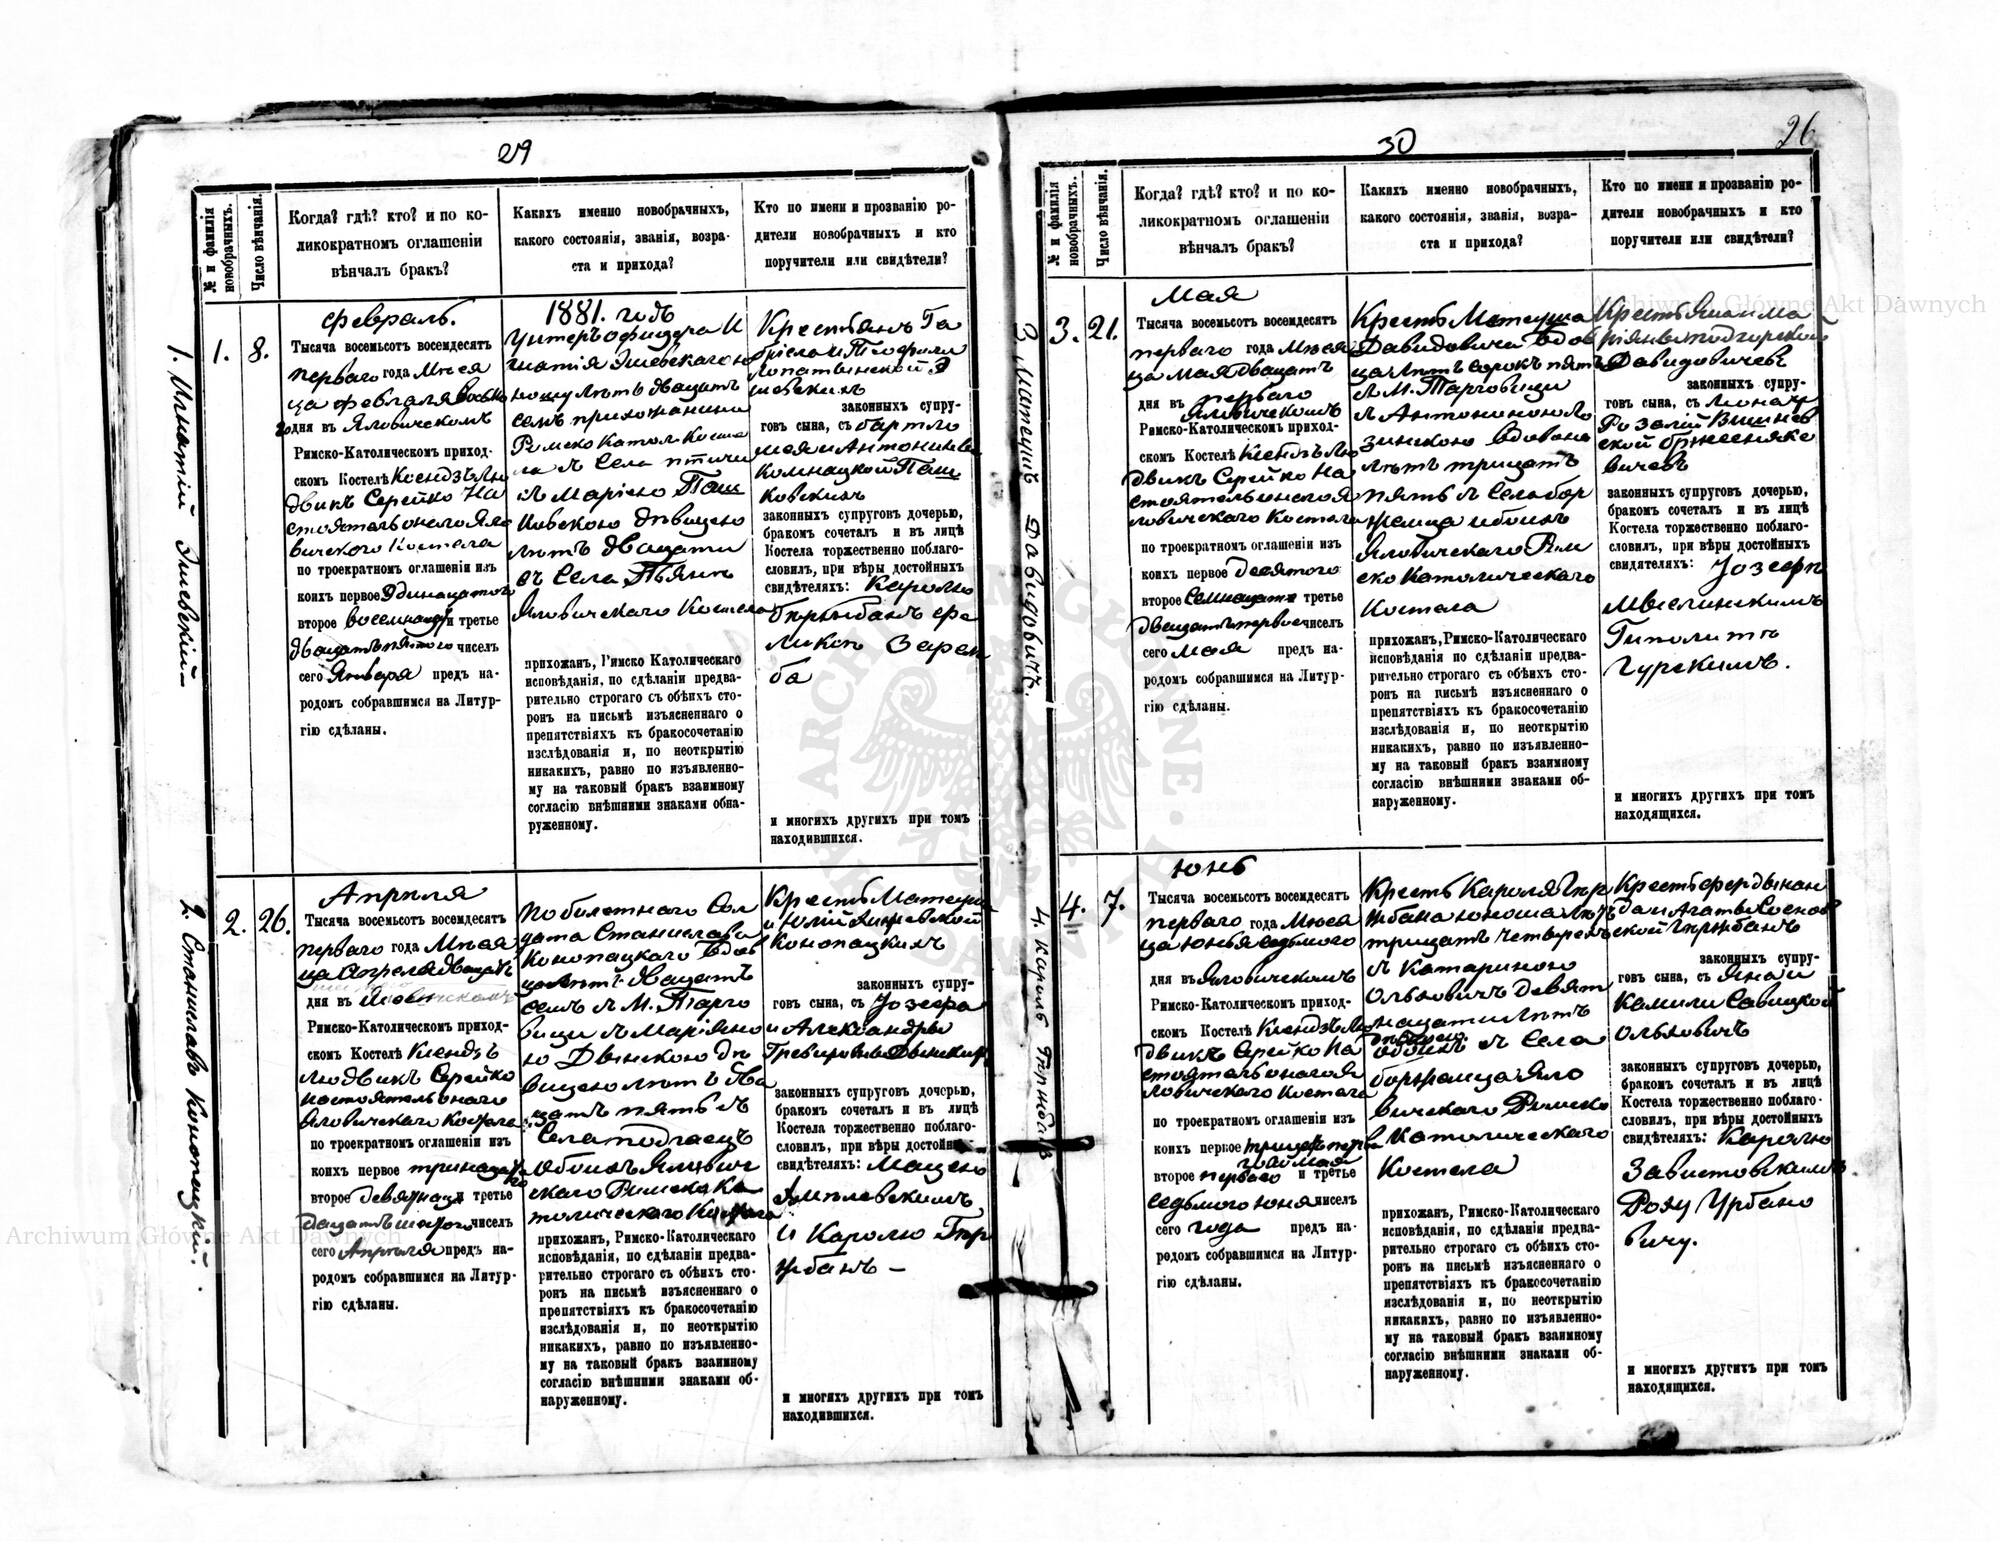 29
№ и фамилія новобрачныхъ.
Число вѣнчанія.
Когда? гдѣ? кто? и по ко-
ликократномъ оглашеніи
вѣнчалъ бракъ?
Какихъ именно новобрачныхъ,
какого состоянія, званія, возра-
ста и прихода?
Кто по имени и прозванію ро-
дители новобрачныхъ и кто
поручители или свидѣтели?
1. Игнатій Эшевскій
1.
8.
Февраль.
Тысяча восемьсотъ восемдесятъ
перваго года Мѣся
ца февраля
дня въ Яловическомъ
Римско-Католическомъ приход-
скомъ Костелѣ Ксендзъ Лю
двикъ Серейко На
стоятель онаго Яло
вическаго Костела
по троекратномъ оглашеніи изъ
коихъ первое Одинацатого
второе и третье
двацать пятого числъ
сего Января предъ на-
родомъ собравшимся на Литур-
гію сдѣланы.
1881. годъ
Унтеръ офицера И
гнатія Эшевскаго ю
ношу лѣтъ двацать
семъ прихожанина
Римско Катол Косте
ла съ Села
съ Маріею Паш
ковскою дѣвицею
лѣтъ двацати
съ Села Пьянъ
Яловическаго Костела
прихожан, Римско Католическаго
исповѣданія, по сдѣланіи предва-
рительно строгаго съ обѣихъ сто-
ронъ на письмѣ изъясненнаго о
препятствіяхъ къ бракосочетанію
изслѣдованія и, по неоткрытію
никакихъ, равно по изъявленно-
му на таковый бракъ взаимному
согласію внѣшними знаками обна-
руженному.
Крестьянъ Га
бріела и Теофили
Лопатынской Э
шевскихъ
законныхъ супру-
говъ сына, съ Бартло
мея и Антонины
Комнацкой Паш
ковскихъ
законныхъ супруговъ дочерью,
бракомъ сочеталъ и въ лицѣ
Костела торжественно поблаго-
словилъ, при вѣры достойныхъ
свидѣтеляхъ: Каролю
Гержбанъ Фе
ликсъ Зарем
ба
и многихъ другихъ при томъ
находившихся.
2. Станиславъ Конопацкій.
2.
26.
Апрѣля
Тысяча восемьсотъ восемдесятъ
перваго года Мѣся
ца Апреля двацать
дня въ Яловическомъ
Римско-Католическомъ приход-
скомъ Костелѣ Ксендзъ
Людвикъ Серейко
настоятель онаго
Яловическаго Костела
по троекратномъ оглашеніи изъ
коихъ первое
второе и третье
числъ
сего Апрѣля предъ на-
родомъ собравшимся на Литур-
гію сдѣланы.
по билетнаго Сол
дата Станислава
Конопацкаго Вдов
ца лѣтъ двацать
семъ съ М. Тарго
вици съ Маріяно
ю Двѣнскою дѣ
вицею лѣтъ два
цать пять съ
Села Подгаецъ
обоихъ Яловиче
скаго Римско Ка
толическаго Костела
прихожан, Римско-Католическаго
исповѣданія, по сдѣланіи предва-
рительно строгаго съ обѣихъ сто-
ронъ на письмѣ изъясненнаго о
препятствіяхъ къ бракосочетанію
изслѣдованія и, по неоткрытію
никакихъ, равно по изъявленно-
му на таковый бракъ взаимному
согласію внѣшними знаками об-
наруженному.
Крестъ
и Юлій
Конопацкихъ
законныхъ супру-
говъ сына, съ Іозефа
и Александры
законныхъ супруговъ дочерью,
бракомъ сочеталъ и въ лицѣ
Костела торжественно поблаго-
словилъ, при вѣры достойныхъ
свидѣтеляхъ:
И Каролю Гер
жбанъ –
и многихъ другихъ при томъ
находившихся.
30
26
№ и фамилія новобрачныхъ.
Число вѣнчанія.
Когда? гдѣ? кто? и по ко-
ликократномъ оглашеніи
вѣнчалъ бракъ?
Какихъ именно новобрачныхъ,
какого состоянія, званія, возра-
ста и прихода?
Кто по имени и прозванію ро-
дители новобрачныхъ и кто
поручители или свидѣтели?
3. Матеушъ Давидовичъ.
3.
21.
Мая
Тысяча восемьсотъ восемдесятъ
перваго года Мѣся
ца мая двацать
перваго
дня въ Яловическомъ
Римско-Католическомъ приход-
скомъ Костелѣ Ксендзъ Лю
двикъ Серейко На
стоятель онаго Я
ловичскаго Костела
по троекратномъ оглашеніи изъ
коихъ первое десятого
второе третье
двацать первое числъ
сего мая предъ на-
родомъ собравшимся на Литур-
гію сдѣланы.
Крестъ Матеуша
Давидовича Вдов
ца лѣтъ сорок пять
съ М. Торговици
съ Антониною Ло
зинскою Вдовою
лѣтъ трицать
пять съ Села Бор
жемца обоихъ
Яловическаго Рим
ско Католическаго
Костела
прихожан, Римско-Католическаго
исповѣданія по сдѣланіи предва-
рительно строгаго съ обѣихъ сто-
ронъ на письмѣ изъясненнаго о
препятствіяхъ къ бракосочетанію
изслѣдованія и, по неоткрытію
никакихъ, равно по изъявленно-
му на таковый бракъ взаимному
согласію внѣшними знаками об-
наруженному.
Крестъ Яна и Ма
ріяны Подгурской
Давидовичевъ
законныхъ супру-
говъ сына, съ
Розалій Вишнев
ской
законныхъ супруговъ дочерью,
бракомъ сочеталъ и въ лицѣ
Костела торжественно поблаго-
словилъ, при вѣры достойныхъ
свидѣтеляхъ: Іозефъ
Гиполитъ
Гурскимъ.
и многихъ другихъ при томъ
находящихся.
4. Кароль Гержбанъ
4.
7.
Юнь
Тысяча восемьсотъ восемдесятъ
перваго года Мѣся
ца Юнья седьмого
дня въ Яловическомъ
Римско-Католическомъ приход-
скомъ Костелѣ Ксендзъ Лю
двикъ Серейко На
стоятель онаго Я
ловичскаго Костела
по троекратномъ оглашеніи изъ
коихъ первое
мая
второе перваго и третье
седьмого юня числъ
сего года предъ на-
родомъ собравшимся на Литур-
гію сдѣланы.
Крестъ Кароля Гер
жбана юноша лѣтъ
трицать четырехъ
съ Катариною
Ольховичъ девят
нацати лѣтъ
обоихъ съ Села
Боржемца Яло
вичскаго Римско
Католическаго
Костела
прихожан, Римско-Католическаго
исповѣданія, по сдѣланіи предва-
рительно строгаго съ обѣихъ сто-
ронъ на письмѣ изъясненнаго о
препятствіяхъ къ бракосочетанію
изслѣдованія и, по неоткрытію
никакихъ, равно по изъявленно-
му на таковый бракъ взаимному
согласію внѣшними знаками об-
наруженному.
Крестъ Фердынан
да и Агаты Сосков
ской Гержбанъ
законныхъ супру-
говъ сына, съ Яна и
Камили Савицкой
Ольховичъ
законныхъ супруговъ дочерью,
бракомъ сочеталъ и въ лицѣ
Костела торжественно поблаго-
словилъ, при вѣры достойныхъ
свидѣтеляхъ: Каролю
Завистовскимъ
Роху Урбано
вичу.
и многихъ другихъ при томъ
находящихся.
Archiwum Główne Akt Dawnych
Archiwum Główne Akt Dawnych
ARCHIWUM GŁÓWNE AKT DAWNYCH